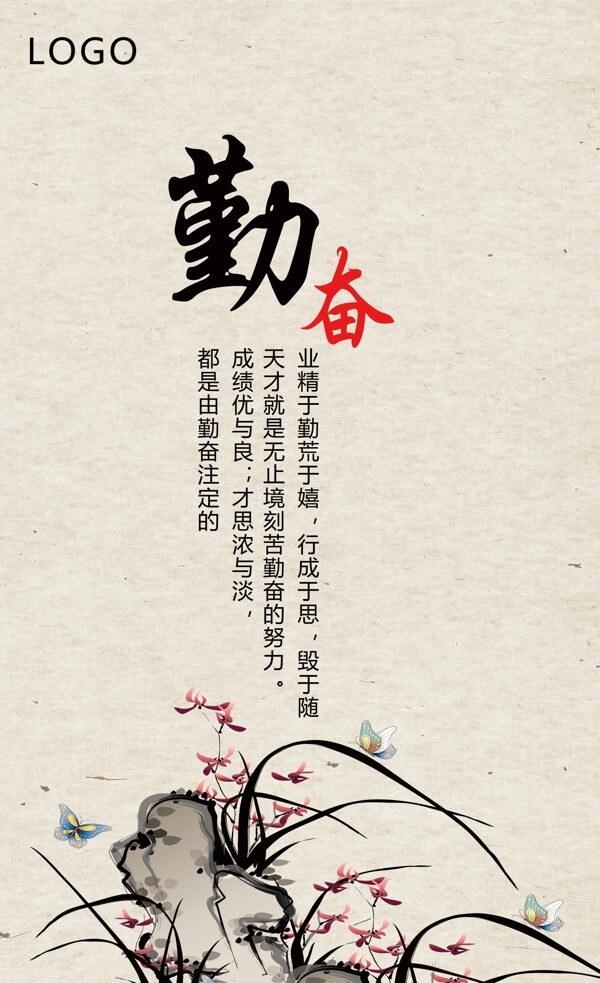 LOGO
勤
奋
业精于勤荒于嬉，行成于思，毁于随
天才就是无止境刻苦勤奋的努力。
成绩优与良；才思浓与淡，
都是由勤奋注定的